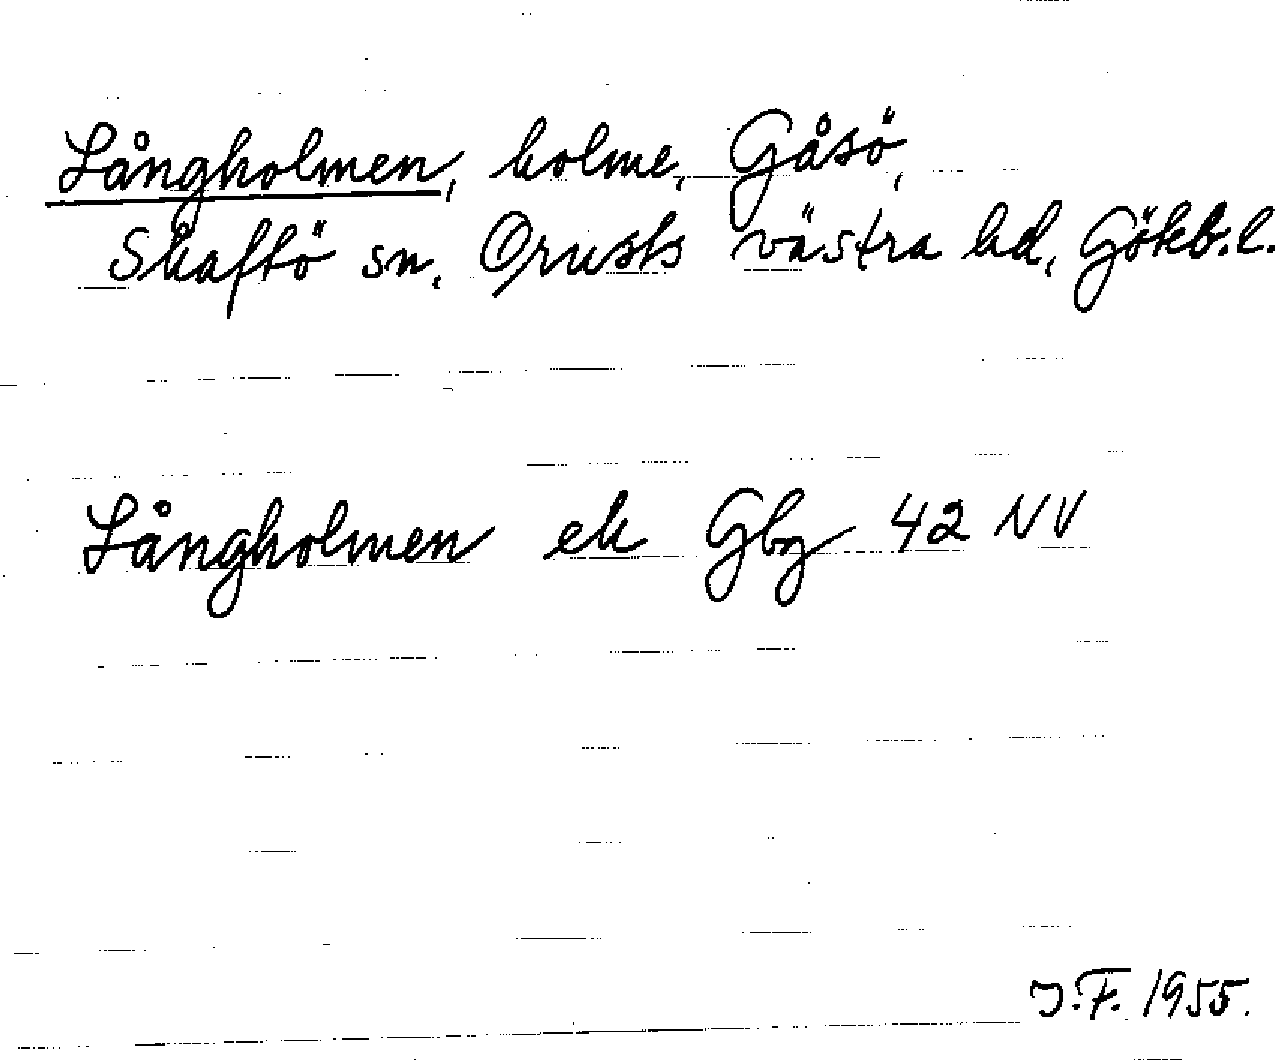 Långholmen, holme, Gåsö,
Skaftö sn, Orusts västra hd, Göteb.l.
Långholmen ek Gbg 42 NV
J.F. 1955.